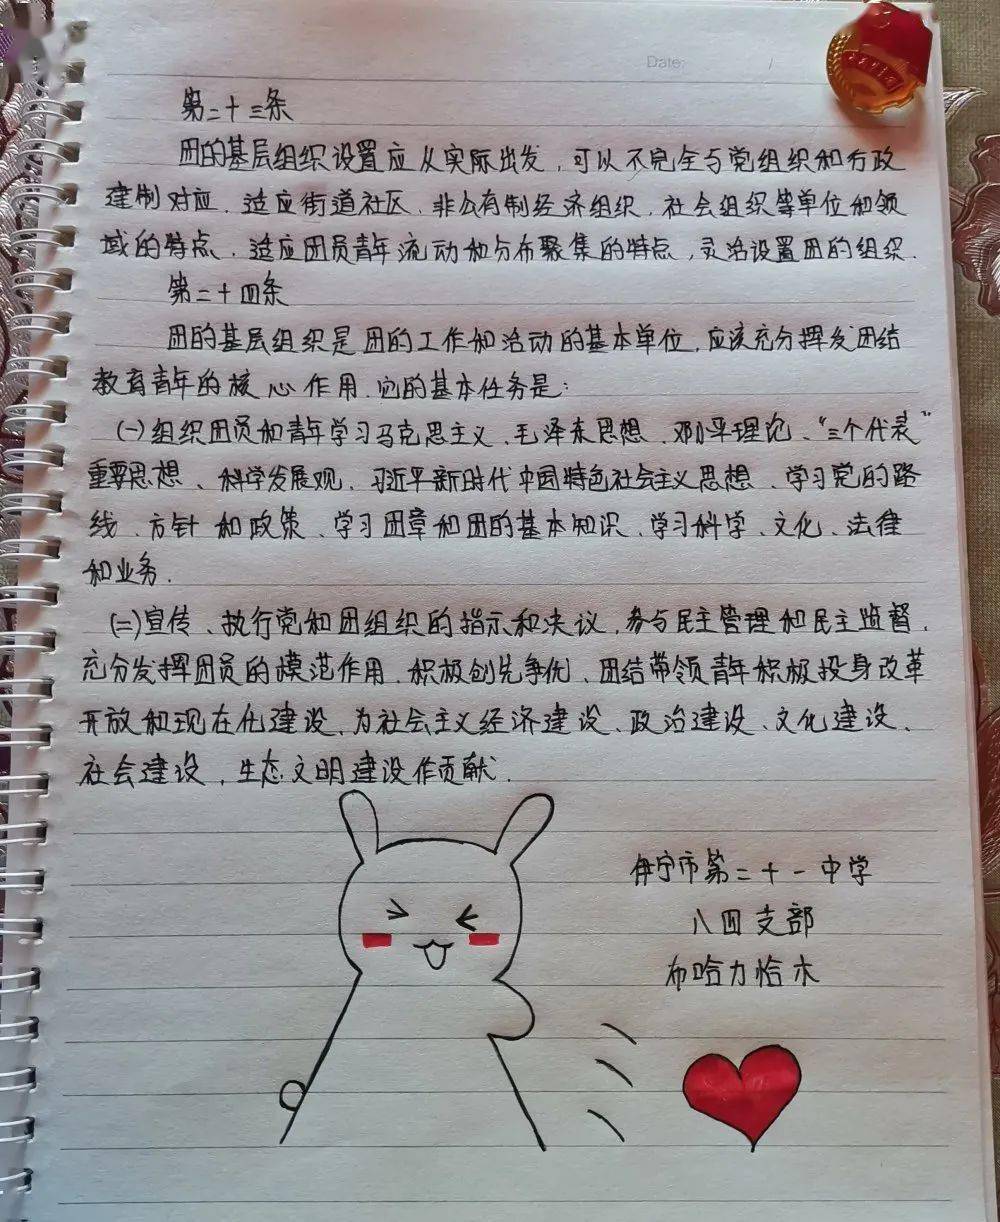 Date:
第二十三条
团的基层组织设置应从实际出发,可以不完全与党组织和行政
建制对应.适应街道社区、非公有制经济组织、社会组织等单位和领
域的特点.适应团员青年流动和分布聚集的特点,灵活设置团的组织.
第二十四条
团的基层组织是团的工作和活动的基本单位,应该充分挥发团结
教育青年的核心作用.它的基本任务是:
(一)组织团员和青年学习马克思主义、毛泽东思想、邓小平理论、“三个代表”
重要思想、科学发展观、习近平新时代中国特色社会主义思想、学习党的路
线、方针和政策、学习团章和团的基本知识、学习科学、文化、法律
和业务.
(二)宣传、执行党和团组织的指示和决议,参与民主管理和民主监督.
充分发挥团员的模范作用.积极创先争优、团结带领青年积极投身改革
开放和现在化建设,为社会主义经济建设、政治建设、文化建设、
社会建设,生态文明建设作贡献.
伊宁市第二十一中学
八四支部
布哈力恰木